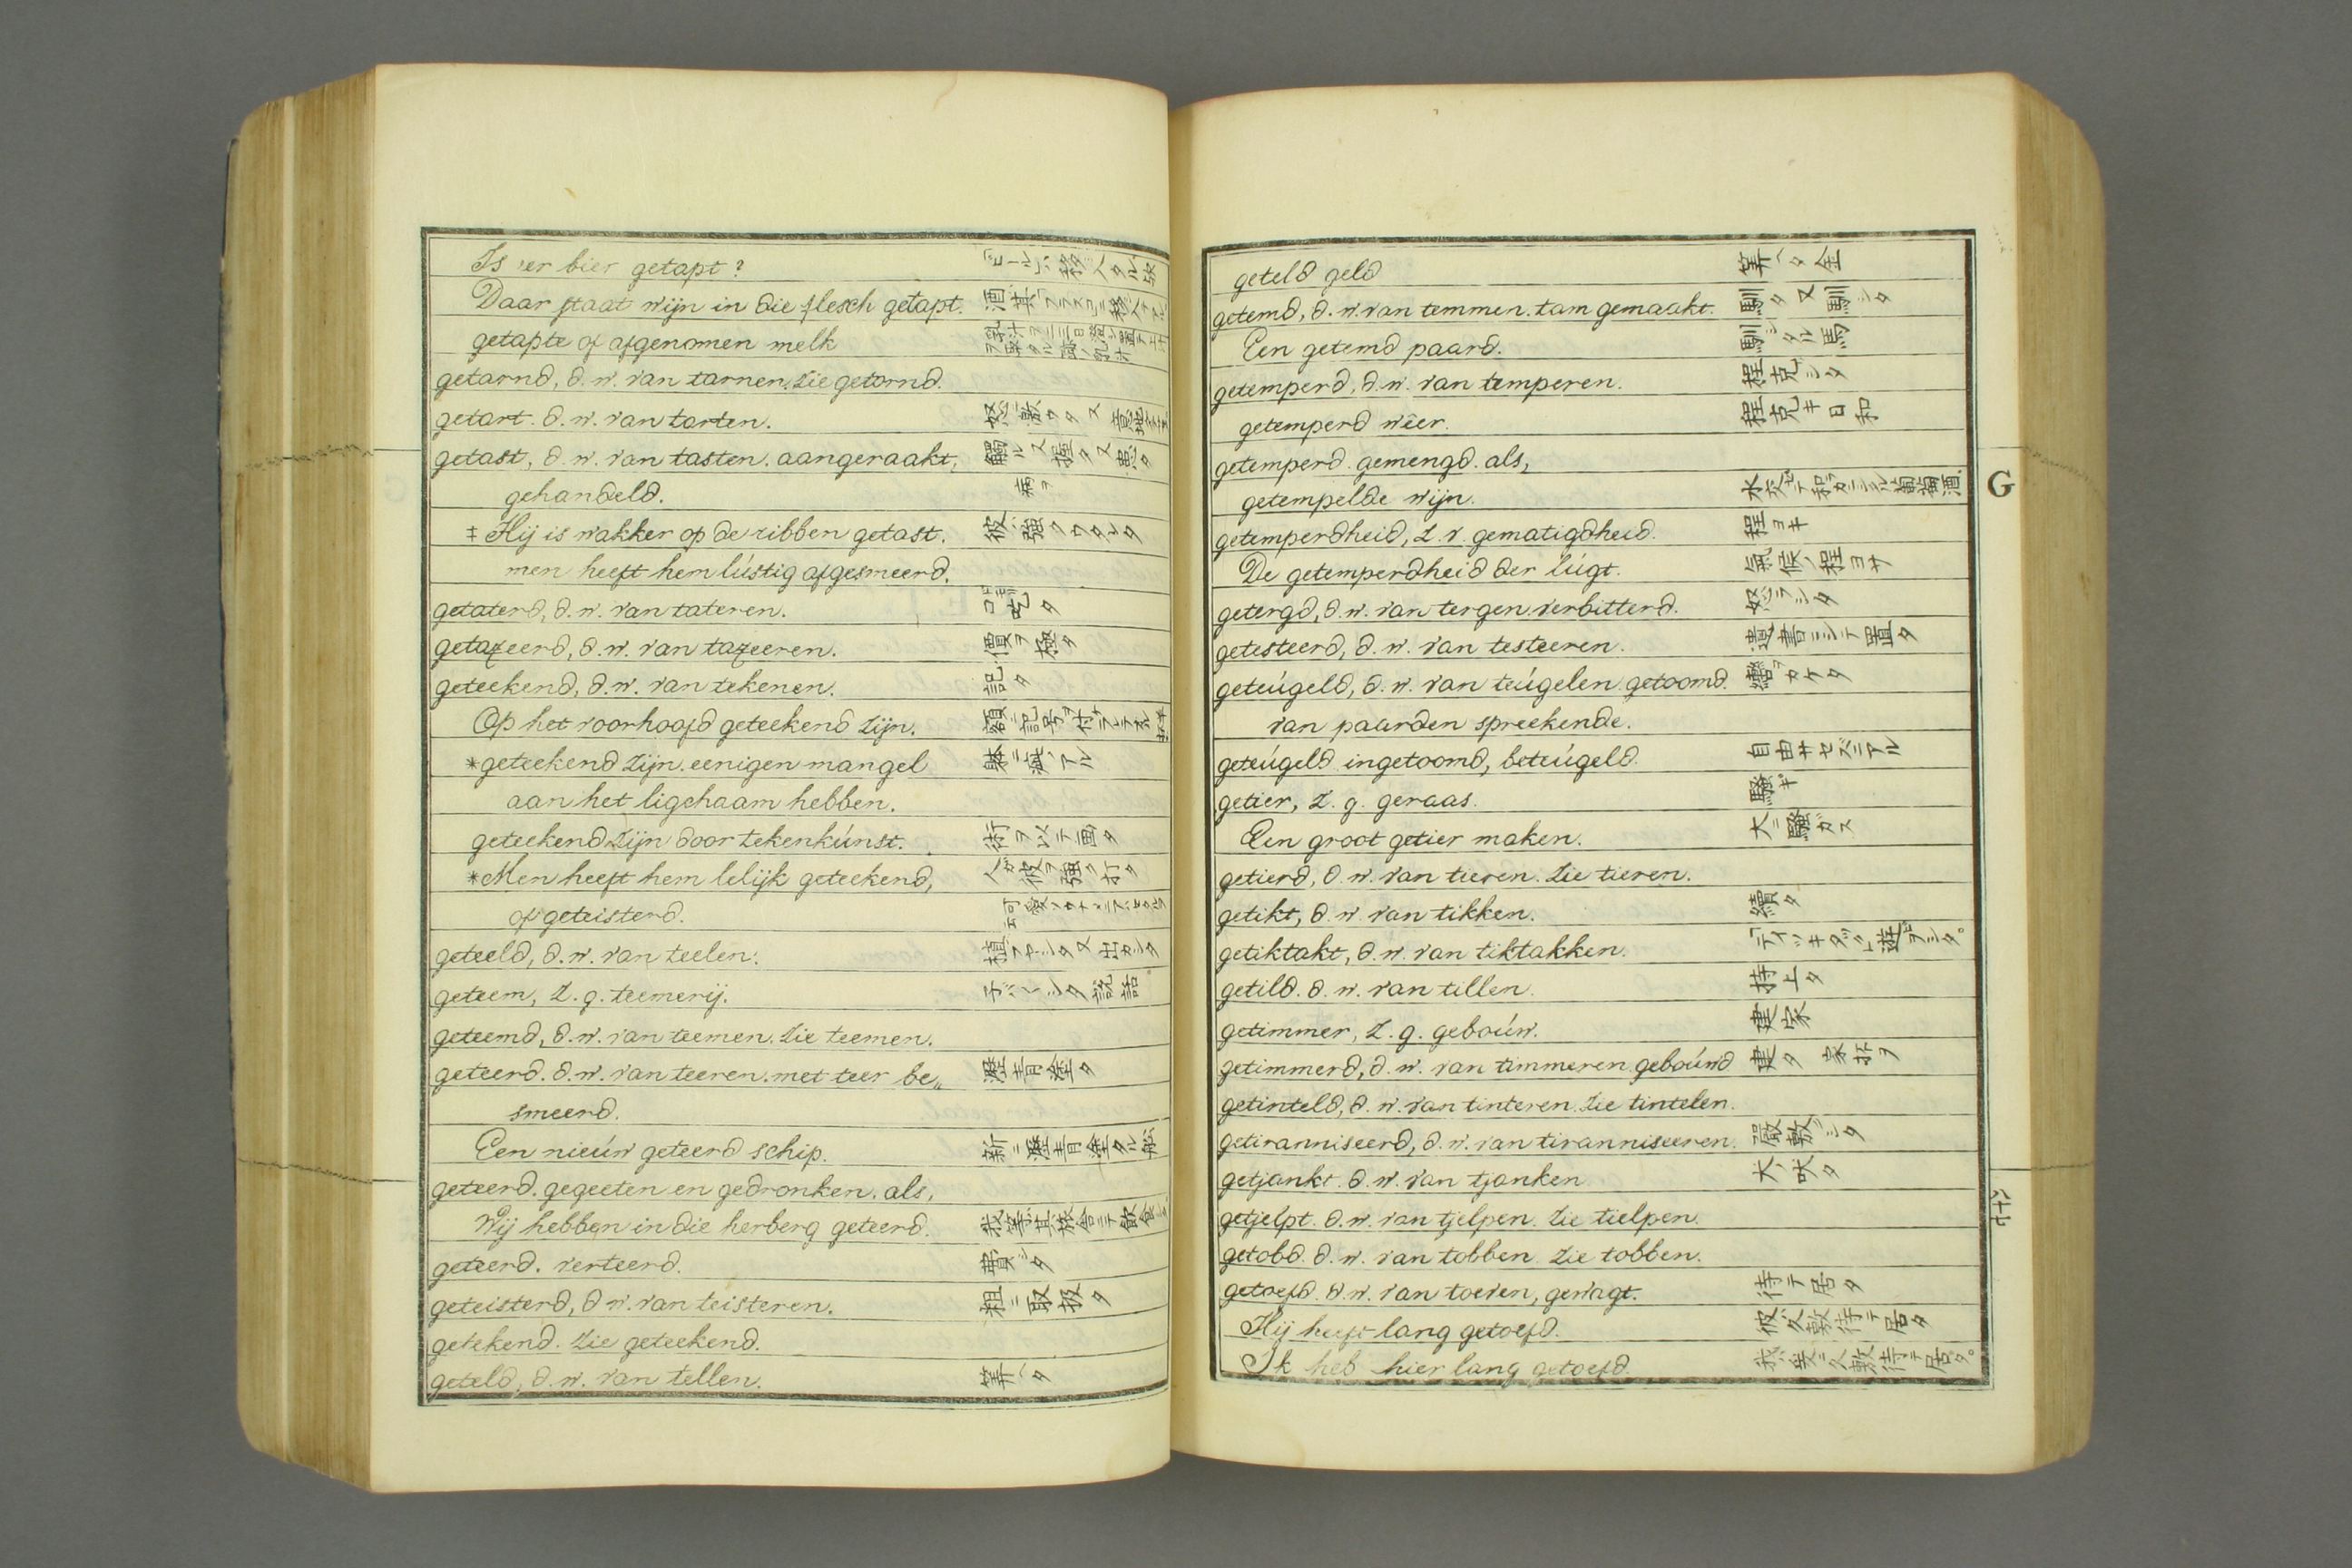 Is 'er bier getapt?
Daar staat wijn in die flesch getapt.
getapte of afgenomen melk
getarnd, d. w. van tarnen. Zie getornd.
getart. d. w. van tarten.
getast, d. w. van tasten. aangeraakt,
gehandeld.
‡ Hij is wakker op de ribben getast. 彼ガ強クウタレタ
men heeft hem lústig afgesmeerd.
getaterd, d. w. van tateren.
getaxeerd, d. w. van taxeeren.價ヲ極タ
geteekend, d. w. van tekenen. 記タ
Op het voorhoofd geteekend zijn.
*geteekend zijn. eenigen mangel
aan het ligchaam hebben.
geteekend zijn door tekenkúnst. 術ヲ以テ画タ
*Men heeft hem lelijk geteekend, 人ガ彼ヲ強ク打タ
of geteisterd.
geteeld, d. w. van teelen.
geteem, z. g. teemerij.
geteemd, d. w. van teemen. Zie teemen.
geteerd. d. w. van teeren. met teer be„ 瀝青塗タ
smeerd.
Een nieúw geteerd schip. 新ニ瀝青塗タル舩
geteerd. gegeeten en gedronken. als,
Wij hebben in die herberg geteerd.
geteerd. verteerd. 費シタ
geteisterd, d w. van teisteren. 粗ニ取扱タ
getekend. Zie geteekend.
geteld, d. w. van tellen. 算ヘタ
geteld geld 算ヘタ金
getemd, d. w. van temmen. tam gemaakt. 馴タ又馴シタ
Een getemd paard. 馴シタル馬
getemperd, d. w. van temperen. 程克シタ
getemperd wêer. 程克キ日和
getemperd. gemengd. als,
getempelde wijn.
getemperdheid, z. v. gematigdheid. 程ヨキ
De getemperdheid der lúgt. 氣候ノ程ヨサ
getergd, d. w. van tergen. verbitterd. 怒ラシタ
getesteerd, d. w. van testeeren. 遺書ニシテ置タ
geteúgeld, d. w. van teúgelen. getoomd. 轡ヲカケタ
van paarden spreekende.
geteúgeld ingetoomd, beteúgeld. 自由サセズニアル
getier, z. g. geraas. 騒ギ
Een groot getier maken. 大ニ騒ガス
getierd, d. w. van tieren. Zie tieren.
getikt, d. w. van tikken. 續タ
getiktakt, d. w. van tiktakken.
getild. d. w. van tillen. 持上タ
getimmer, z. g. geboúw. 建家
getimmerd, d. w. van timmeren geboúwd 建タ 家抔ヲ
getinteld, d. w. van tinteren. Zie tintelen.
getiranniseerd, d. w. van tiranniseeren. 嚴敷シタ
getjankt. d. w. van tjanken 犬ノ吠タ
getjelpt. d. w. van tjelpen. Zie tielpen.
getobd. d. w. van tobben Zie tobben.
getoefd. d. w. van toeven, gewagt. 待テ居タ
Hij heeft lang getoefd. 彼ガ久敷待テ居タ
Ik heb hier lang getoefd. 我ガ爰ニ久敷待テ居タ。
G